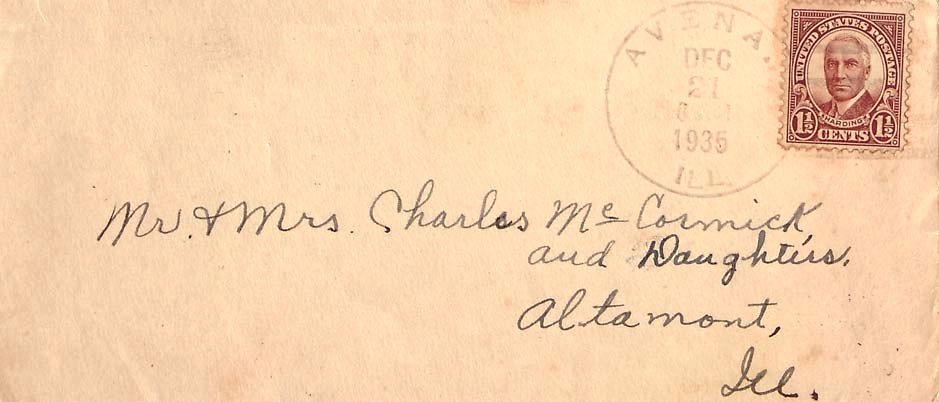 AVENA.
DEC
21
1935
ILL.
UNITED STATES POSTAGE
HARDING
1½ CENTS 1½
Mr. & Mrs. Charles Mc Cormick,
and Daughters.
Altamont,
Ill.